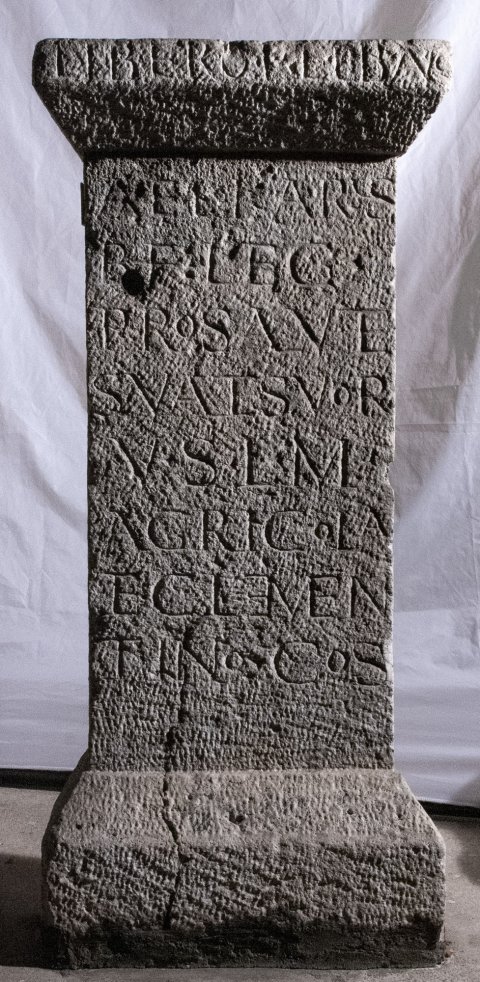 LIBERO P ET
B F LEG
PRO SALVTE
SVA ET SVOR
V S L M
AGRICOLA
ET CLEMEN
TINO COS